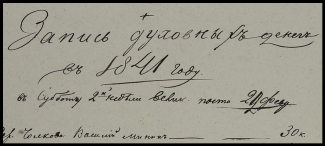 Запись духовныхъ денегъ
съ 1841 году.
въ Субботу 2й недѣли Велик. поста
Василий 30 к.